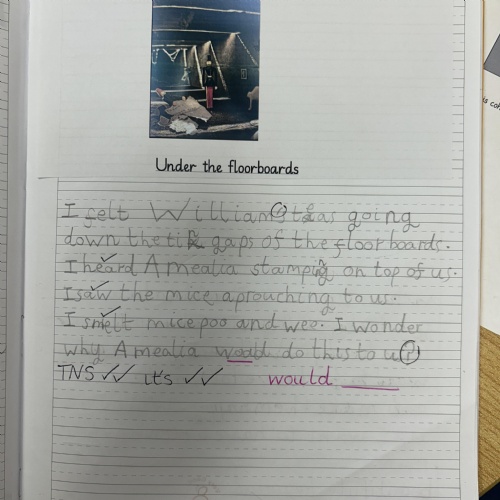 Under the floorboards
I felt William thas going
down the tik gaps of the floor boards.
I heard Amealia stamping on top of us.
I saw the mice aprouching to us.
I smelt mice poo and wee. I wonder
why Amealia woall do this to us?
TNS ✓✓ it's ✓✓ would